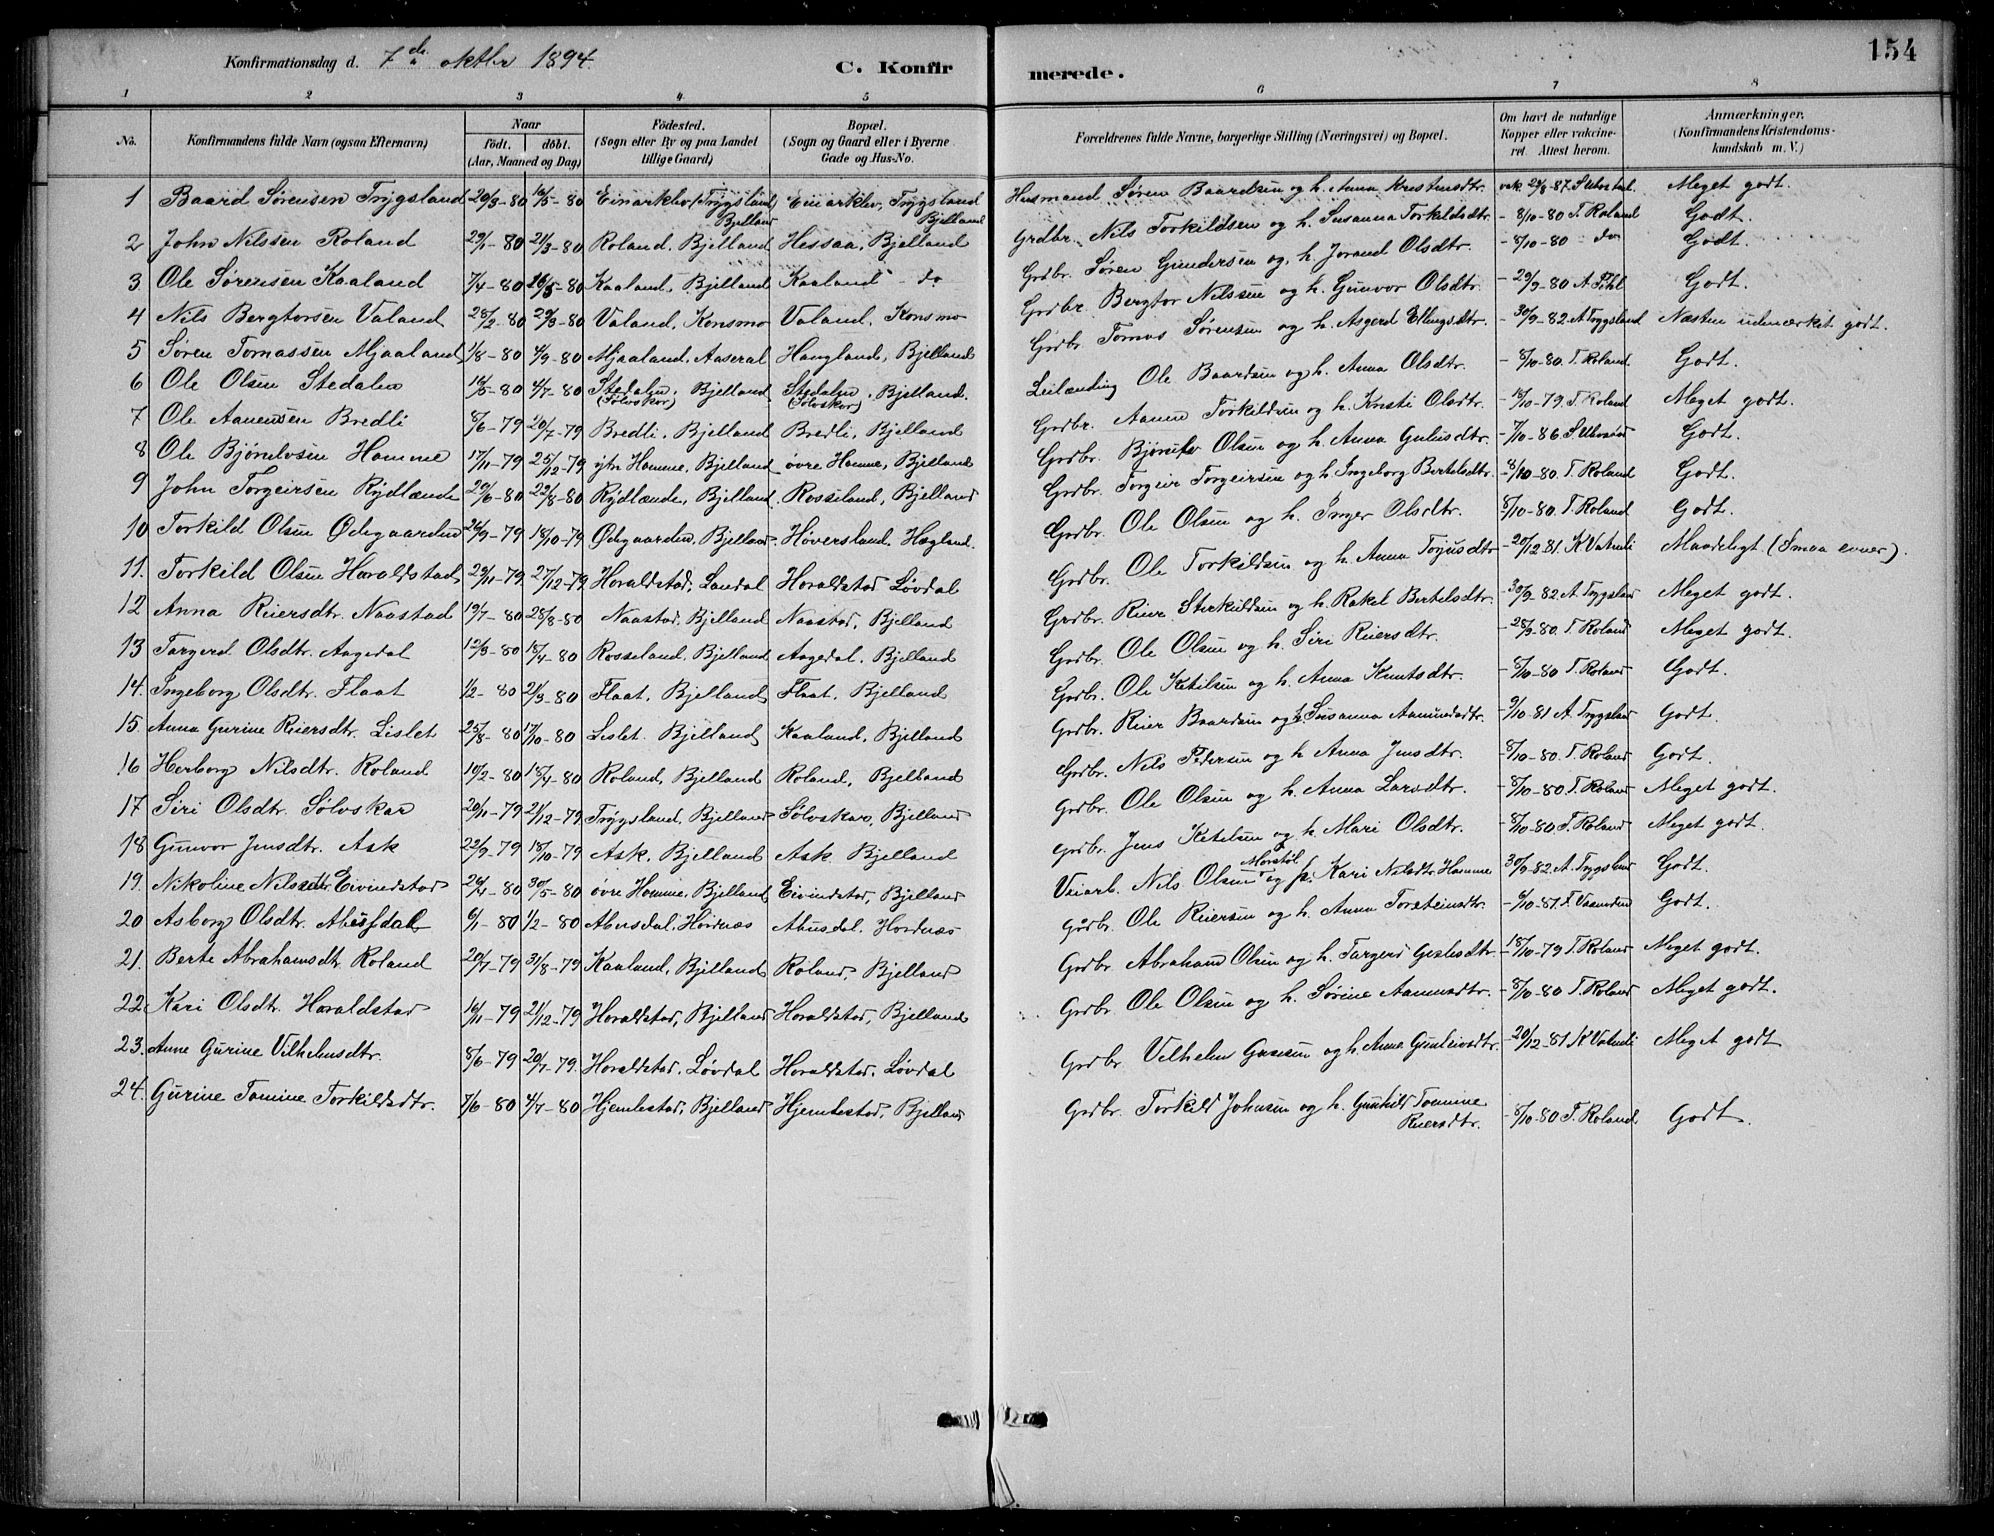 154
Konfirmationsdag d. 7de oktbr 1894. C. Konfirmerede.
1 2 3 4 5 6 7 8
No. Konfirmandens fulde Navn (ogsaa Efternavn) Naar födt. döbt. (Aar, Maaned og Dag) Födested. (Sogn eller By og paa Landet tillige Gaard) Bopæl. (Sogn og Gaard eller i Byerne Gade og Hus-No. Forældrenes fulde Navne, borgerlige Stilling (Næringsvei) og Bopæl. Om havt de naturlige Kopper eller vaccineret. Attest herom. Anmærkninger. (Konfirmandens Kristendomskundskab m. V.)
1 Baard Sørensen Trygsland 20/3-80 16/5-80 Einarklev (Trygsland) Bjelland Einarklev, Trygsland Bjelland Husmand Søren Baardsen og h. Anna Kristensdtr. vak. 29/8-87. Meget godt.
2 John Nilssen Roland 29/1-80 21/3-80 Roland, Bjelland Hessaa, Bjelland Grdbr. Nils Torkildsen og h. Susanna Torkildsdtr. - 8/10-80 T. Roland Godt.
3 Ole Sørensen Kaaland 7/4-80 16/5-80 Kaaland, Bjelland Kaaland - do Grdbr. Søren Gundersen og h. Jorand Olsdtr. - 8/10-80 do Godt.
4 Nils Bergtorsen Valand 28/2-80 29/3-80 Valand, Konsmo Valand, Konsmo Grdbr. Bergtor Nilssen og h. Gunvor Olsdtr. - 29/9-80 Godt.
5 Søren Tomassen Mjaaland 1/8-80 4/9-80 Mjaaland, Aaseral Haugland, Bjelland Grdbr. Tomas Sørensen og h. Asgerd Ellingsdtr. - 30/9-82 A Trygsland Næsten udmærket godt.
6 Ole Olsen Stedalen 16/5-80 4/7-80 Stedalen, Bjelland (Sølvskar) Stedalen, Bjelland. (Sølvskar) Leilænding Ole Baardsen og h. Anna Olsdtr. - 8/10-80. T. Roland Godt.
7 Ole Aanensen Bredli 8/6-79 20/7-79 Bredli, Bjelland Bredli, Bjelland Grdbr. Aanen Torkildsen og h. Kristi Olsdtr. - 18/10-79. T. Roland Meget godt.
8 Ole Bjørnlvsen Homme 17/11-79 25/12-79 ytr Homme, Bjelland øvre Homme, Bjelland Grdbr. Olsen og h. Anna - 7/10-86 Godt.
9 John Torgeirsen Rydlænde 20/6-80 22/8-80 Rydlænde, Bjelland Rosseland, Bjelland Grdbr. Torgeir Torgeirsen og h. Ingeborg Bertelsdtr. - 8/10-80. T. Roland Godt.
10 Torkild Olsen Ødegaarden 26/9-79 18/10-79 Ødegaarden, Bjelland Høversland, Hægland. Grdbr. Ole Olsen og h. Inger Olsdtr. 8/10-80. T. Roland Godt.
11. Torkild Olsen Haraldstad 29/11-79 27/12-79 Haraldstad, Laudal Haraldstad Løvdal Grdbr. Ole Torkildsen og h. Anna Torjusdtr - 20/12-81 K Vatneli Maadeligt (Smaa evner).
12 Anna Reiersdtr. Naastad 19/7-80 28/8-80 Naastad, Bjelland Naastad, Bjelland Grdbr. Reier Sterkildsen og h. Rakel Bertelsdtr. 30/9-82. A Trygsland Meget godt.
13 Targerd Olsdtr. Aagedal 12/3-80 18/4-80 Rosseland, Bjelland Aagedal, Bjelland Grdbr. Ole Olsen og h. Siri Reiersdtr. - 28/9-80. T. Roland Meget godt.
14. Ingeborg Olsdtr. Flaat 1/2-80 21/3-80 Flaat, Bjelland Flaat, Bjelland Grdbr. Ole Ketilsen og h. Anna Knutsdtr. - 8/10-80 T. Roland Godt.
15. Anna Gurine Reiersdtr. Lislet 25/8-80 17/10-80 Lislet. Bjelland Kaaland, Bjelland Grdbr. Reier Baardsen og h. Susanna Aanundsdtr. - 9/10-81 A. Trygsland Godt.
16 Herborg Nilsdtr. Roland 10/2-80 18/4-80 Roland, Bjelland Roland, Bjelland Grdbr. Nils Pedersen og h. Anna Jensdtr. - 8/10-80. T. Roland Godt.
17 Siri Olsdtr. Sølvskar 20/11-79 21/12-79 Trygsland, Bjelland Sølvskar, Bjelland Grdbr. Ole Olsen og h. Anna Larsdtr. - 8/10-80 T. Roland Meget godt.
18 Gunvor Jensdtr. Ask 22/9-79 18/10-79 Ask, Bjelland Ask Bjelland Grdbr. Jens Ketilsen og h. Mari Olsdtr. 8/10-80 T. Roland Meget godt.
19. Nikoline Nilsdtr. Eivindstad 26/4-80 30/5-80 øvre Homme, Bjelland Eivindstad, Bjelland Veiarb. Nils Olsen Morstøl og p. Kari Nilsdtr Homme 30/9-82. A. Trygsland Godt.
20 Asborg Olsdtr. Abusdal 6/1-80 1/2-80 Abusdal, Hornæs Abusdal. Hornæs Gårdbr. Ole Reiersen og h. Anna Torsteinsdtr. - 6/10-81 Godt.
21. Berte Abrahamsdtr. Roland 20/7-79 31/8-79 Kaaland, Bjelland Roland, Bjelland Grdbr. Abraham Olsen og h. Targerd - 18/10-79 T. Roland Meget godt.
22. Kari Olsdtr. Haraldstad 16/11-79 21/12-79 Haraldstad, Bjelland Haraldstad, Bjelland Grdbr. Ole Olsen og h. Sørine Aanensdtr. - 8/10-80 T. Roland Meget godt.
23. Anne Gurine Vilhelmsdtr. 8/6-79 20/7-79. Haraldstad, Løvdal Haraldstad, Løvdal Grdbr. Vilhelm og h Anne Gunleivsdtr. - 20/12-81 K Vatneli Meget godt
24. Gurine Tomine Torkildsdtr. 7/6-80 4/7-80 Hjemlestad, Bjelland Hjemlestad, Bjelland Grdbr. Torkild Johnsen og h. Gunhild Tomine Reiersdtr. - 8/10-80 T. Roland Godt.